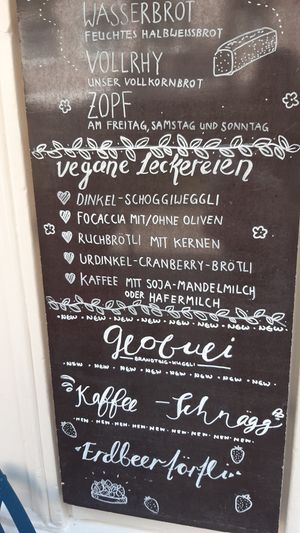 WASSERBROT
FEUCHTES HALBWEISSBROT
VOLLRHY
UNSER VOLLKORNBROT
ZOPF
AM FREITAG, SAMSTAG UND SONNTAG
vegane Leckereien
DINKEL-SCHOGGIWEGGLI
FOCACCIA MIT/OHNE OLIVEN
RUCHBRÖTLI MIT KERNEN
URDINKEL-CRANBERRY-BRÖTLI
KAFFEE MIT SOJA-MANDELMILCH
ODER HAFERMILCH
NEW NEW NEW NEW NEW NEW NEW
BRANDTEIG-
NEW NEW NEW NEW NEW NEW NEW
Kaffee-Schnägg
NEW NEW NEW NEW NEW NEW NEW
Erdbeertörtli